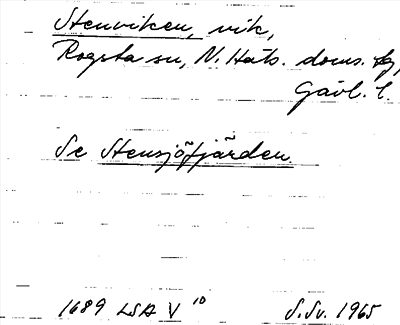 Stenviken, vik,
Rogsta sn, N. Häls. doms. fg,
Gävl. l.
Se Stensjöfjärden.
1689 LSA V 10 S. Sv. 1965